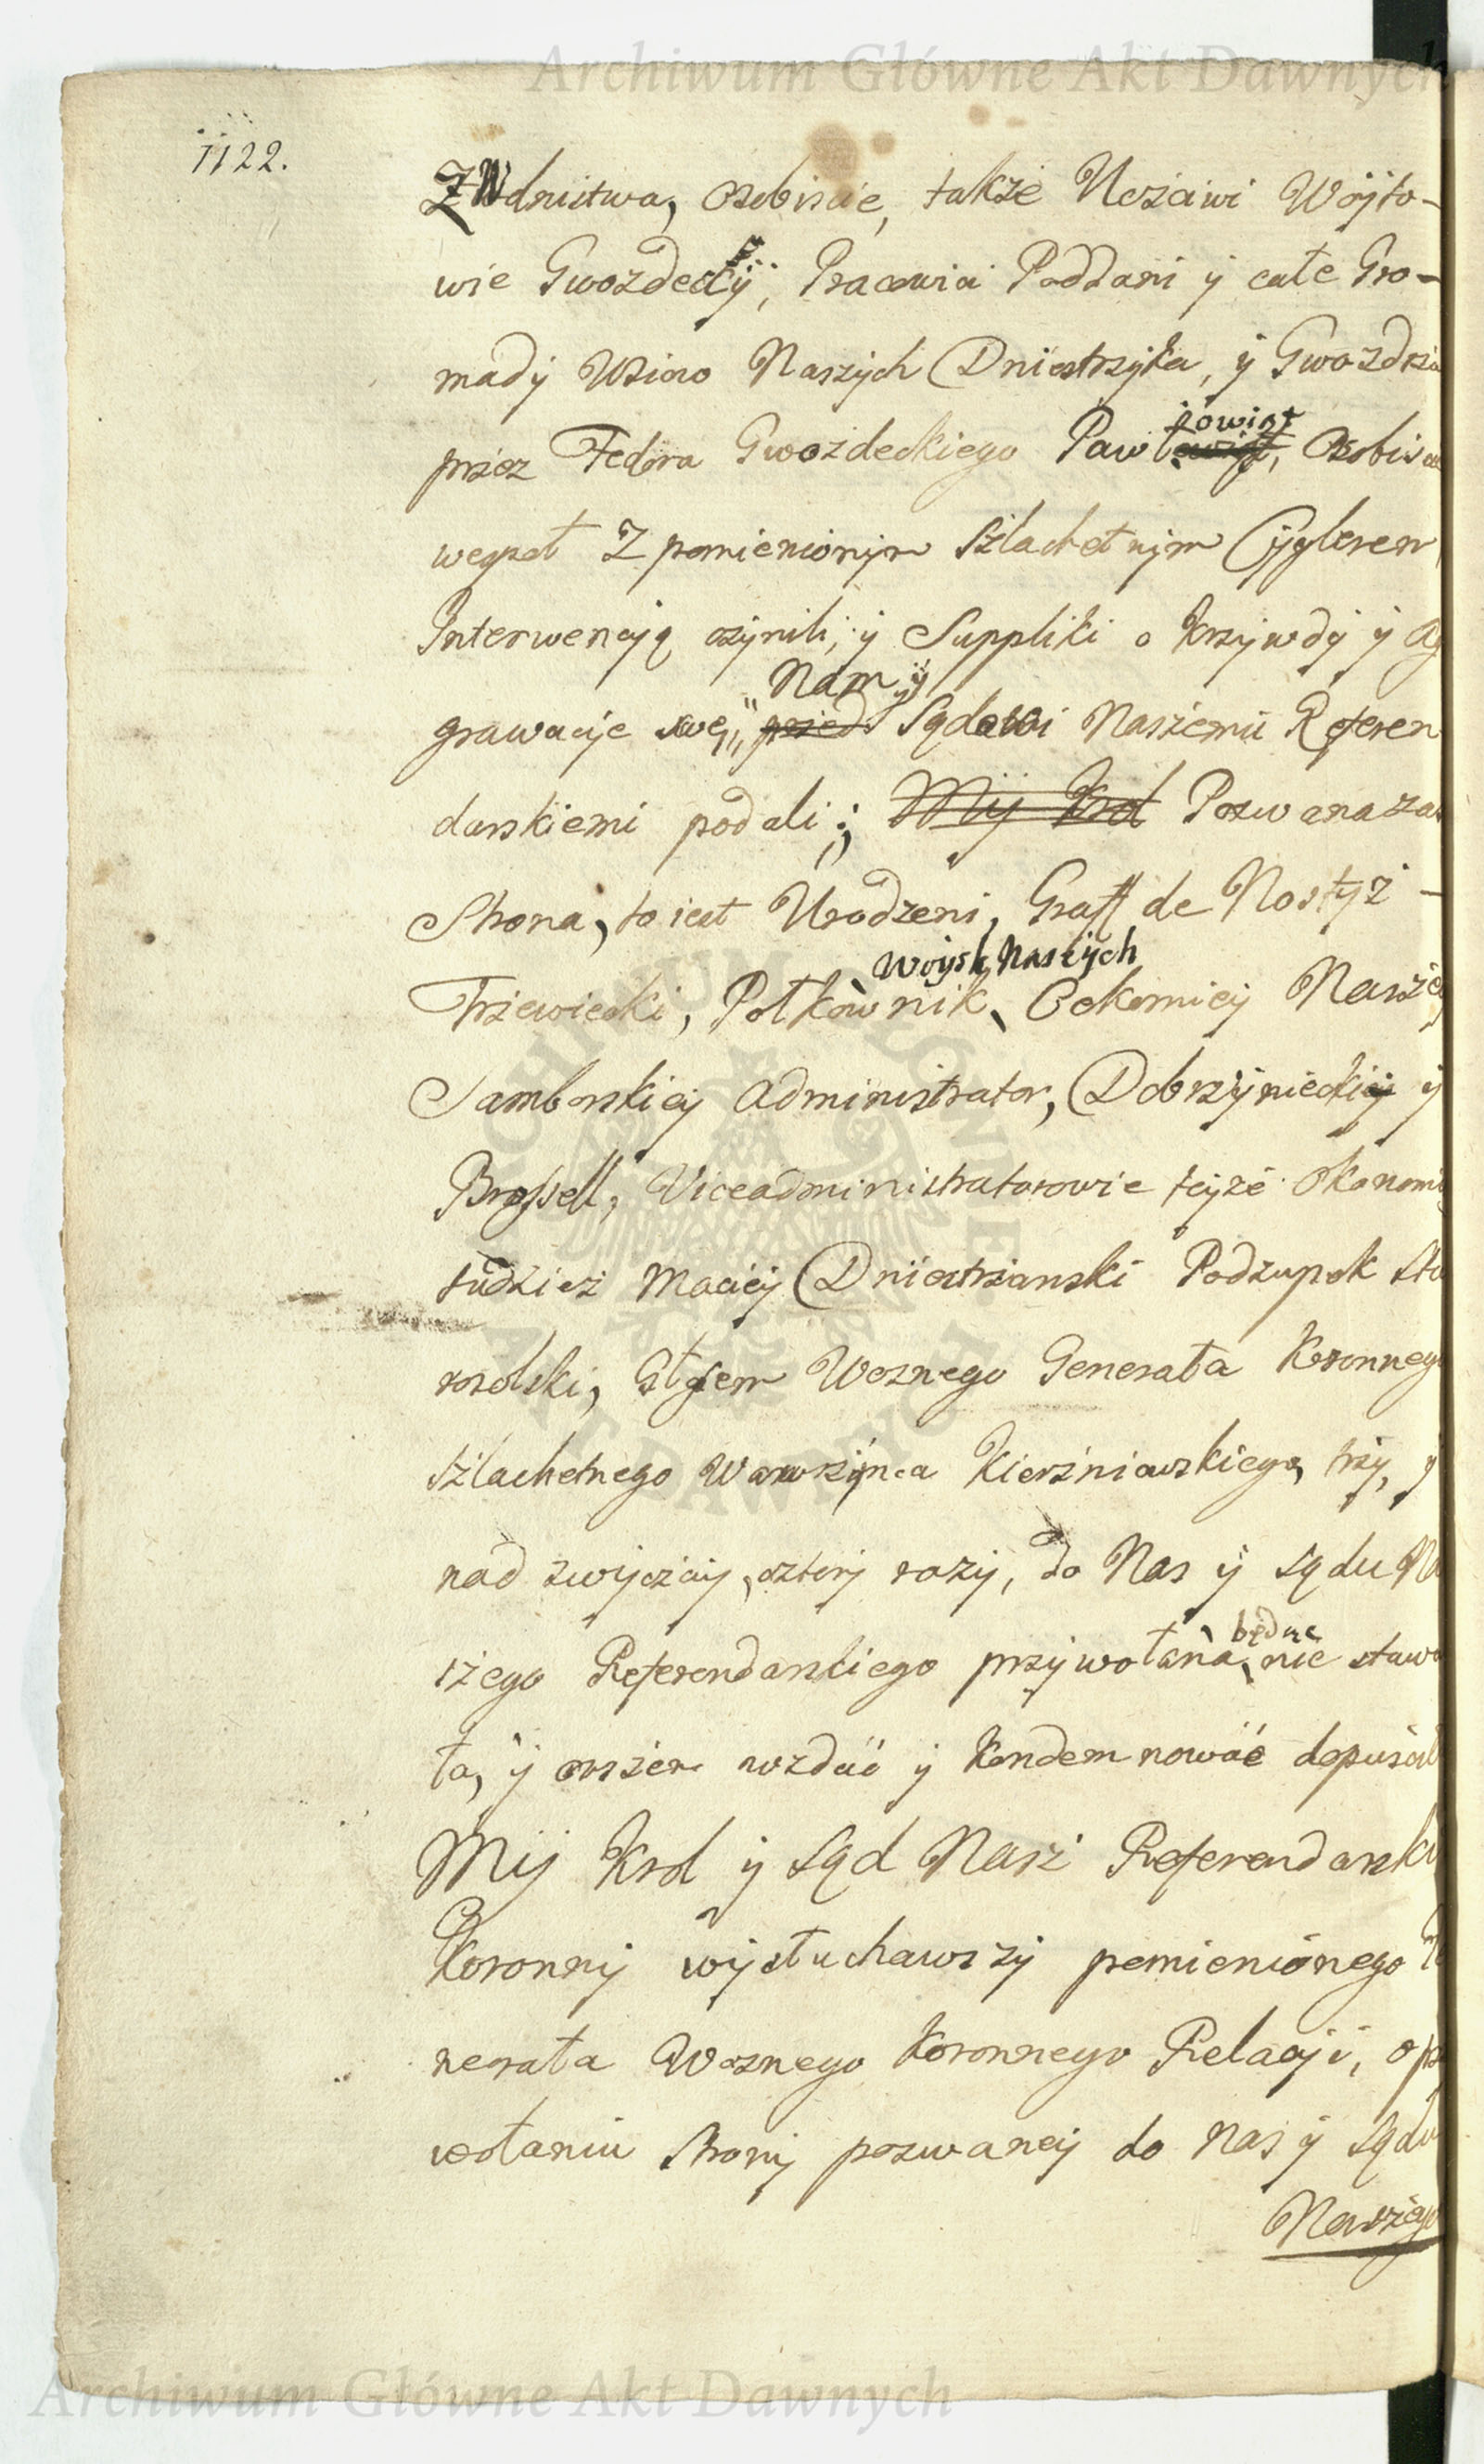 Archiwum Główne Akt Dawnych
1122.
Z Wdnictwa, osobiscie, także Uczciwi Wojto-
wie Gwozdeccy, Pracowici Poddani y całe Gro-
mady Wsiow Naszych Dniestrzyka, y Gwozdzia
iowicz
przez Fedora Gwozdeckiego Pawlowicz, osobiscie
wespoł Z pomienionym Szlachetnym Cyglerem
Interwencyą czynili, y Suppliki o krzywdy y Ag
Nam y
grawacye swe, przed Sądowi Naszemu Referen
darskiemi podali; My Krol Pozwana zas
Strona, to iest Urodzeni, Graff de Nostyz -
Woysk Naszych
Trzewicki, Połkownik, Oekomiey Naszey
Samborskiey Administrator, Dobrzyniecki y
Brossell, Viceadministratorowie teyże Okonomiy
tudzież Maciey Dniestrzanski Podzupek Sta
rosolski, Głosem Woznego Generała Koronnego
Szlachetnego Wawrzynca Kierzniewskiego, trzy, y
nad zwyczay, cztery razy, do Nas y Sądu Na
będąc
szego Referendarskiego przywołana, nie stawa
ła, y owszem wzdać y kondemnować dopuscił
My Krol y Sąd Nasz Referendarski
Koronny wysłuchawszy pomienionego
nerała Woznego Koronnego Relacyi, o prz
wołaniu Strony pozwaney do Nas y Sądu
Naszego
Archiwum Główne Akt Dawnych